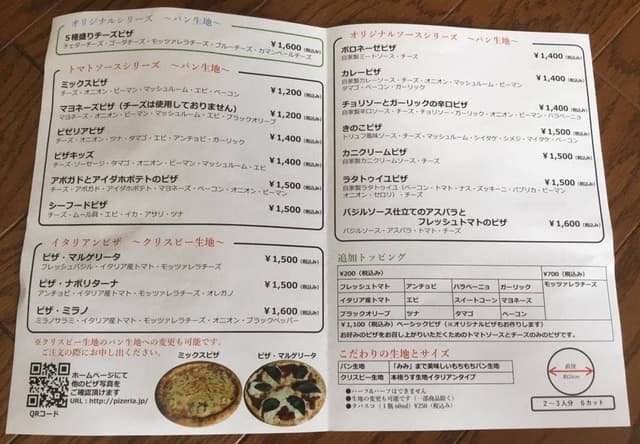 オリジナルシリーズ ～パン生地～
５種盛りチーズピザ ¥1,600(税込み)
チェダーチーズ・ゴーダチーズ・モッツァレラチーズ・ブルーチーズ・カマンベールチーズ
トマトソースシリーズ ～パン生地～
ミックスピザ ¥1,200(税込み)
チーズ・オニオン・ピーマン・マッシュルーム・エビ・ベーコン
マヨネーズピザ（チーズは使用しておりません） ¥1,200(税込み)
オニオン・ピーマン・マッシュルーム・エビ・ベーコン・ブラックオリーブ
ピゼリアピザ ¥1,400(税込み)
チーズ・オニオン・ツナ・タマゴ・エビ・アンチョビ・ガーリック
ピザキッズ ¥1,400(税込み)
チーズ・ソーセージ・タマゴ・オニオン・ピーマン・マッシュルーム・エビ
アボガドとアイダホポテトのピザ ¥1,500(税込み)
チーズ・アボガド・アイダホポテト・マヨネーズ・ベーコン・オニオン・ピーマン
シーフードピザ ¥1,500(税込み)
チーズ・ムール貝・エビ・イカ・アサリ・ツナ
イタリアンピザ ～クリスピー生地～
ピザ・マルゲリータ ¥1,500(税込み)
フレッシュバジル・イタリア産トマト・モッツァレラチーズ
ピザ・ナポリターナ ¥1,500(税込み)
アンチョビ・イタリア産トマト・モッツァレラチーズ・オレガノ
ピザ・ミラノ ¥1,600(税込み)
ミラノサラミ・イタリア産トマト・モッツァレラチーズ・オニオン・ブラックペッパー
※クリスピー生地のパン生地への変更も可能です。
ご注文の際にお申し出ください。
ミックスピザ
ピザ・マルゲリータ
ホームページにて
他のピザ写真を
ご確認頂けます
URL：http://pizeria.jp/
QRコード
オリジナルソースシリーズ ～パン生地～
ボロネーゼピザ ¥1,400(税込み)
自家製ミートソース・チーズ
カレーピザ ¥1,400(税込み)
自家製カレーソース・チーズ・オニオン・マッシュルーム・ピーマン
タマゴ・ベーコン・ガーリック
チョリソーとガーリックの辛口ピザ ¥1,400(税込み)
自家製辛口ソース・チーズ・チョリソー・ガーリック・オニオン・ピーマン・ハラペーニョ
きのこピザ ¥1,500(税込み)
トリュフ風味ソース・チーズ・マッシュルーム・シイタケ・シメジ・マイタケ・ベーコン
カニクリームピザ ¥1,500(税込み)
自家製カニクリームソース・チーズ
ラタトゥイユピザ ¥1,500(税込み)
自家製ラタトゥイユ（ベーコン・トマト・ナス・ズッキーニ・パプリカ・ピーマン
オニオン・セロリ）・チーズ
バジルソース仕立てのアスパラと
フレッシュトマトのピザ ¥1,600(税込み)
バジルソース・アスパラ・トマト・チーズ
追加トッピング
¥200（税込み） ¥700（税込み）
フレッシュトマト アンチョビ ハラペーニョ ガーリック モッツァレラチーズ
イタリア産トマト エビ スイートコーン マヨネーズ
ブラックオリーブ ツナ タマゴ ベーコン
¥1,100（税込み）ベーシックピザ（※オリジナルピザもお作りします）
お好みのピザをお召し上がりいただくためのトマトソースとチーズのみのピザです。
こだわりの生地とサイズ
パン生地 「みみ」まで美味しいもちもちパン生地
クリスピー生地 本格うす生地イタリアンタイプ
●ハーフ&ハーフはできません
●生地の変更も可能です（一部商品除く）
●タバスコ（1瓶60ml）¥250（税込み）
直径
約24cm
２～３人分 ６カット